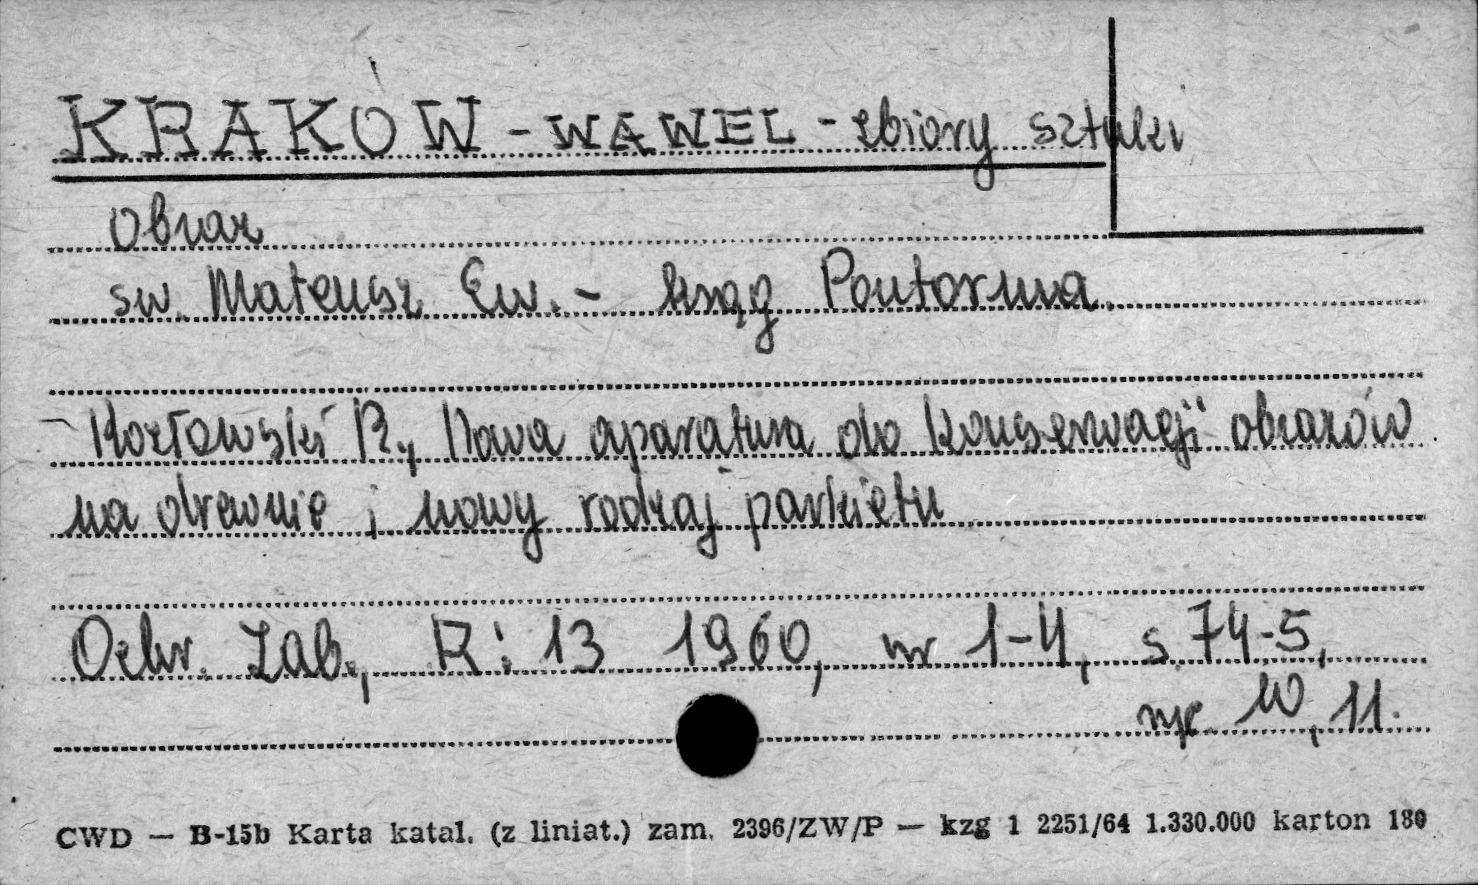 KRAKÓW - WAWEL - zbiory sztuki
Obraz
św. Mateusz Ew. - krąg Pontorma.
Kozłowski R., Nowa aparatura do konserwacji obrazów
na drewnie i nowy rodzaj parkietu
Ochr. Zab., R: 13 1960, nr 1-4, s. 74-5,
ryc. 10, 11.
CWD — B-15b Karta katal. (z liniat.) zam. 2396/ZW/P — kzg 1 2251/64 1.330.000 karton 180